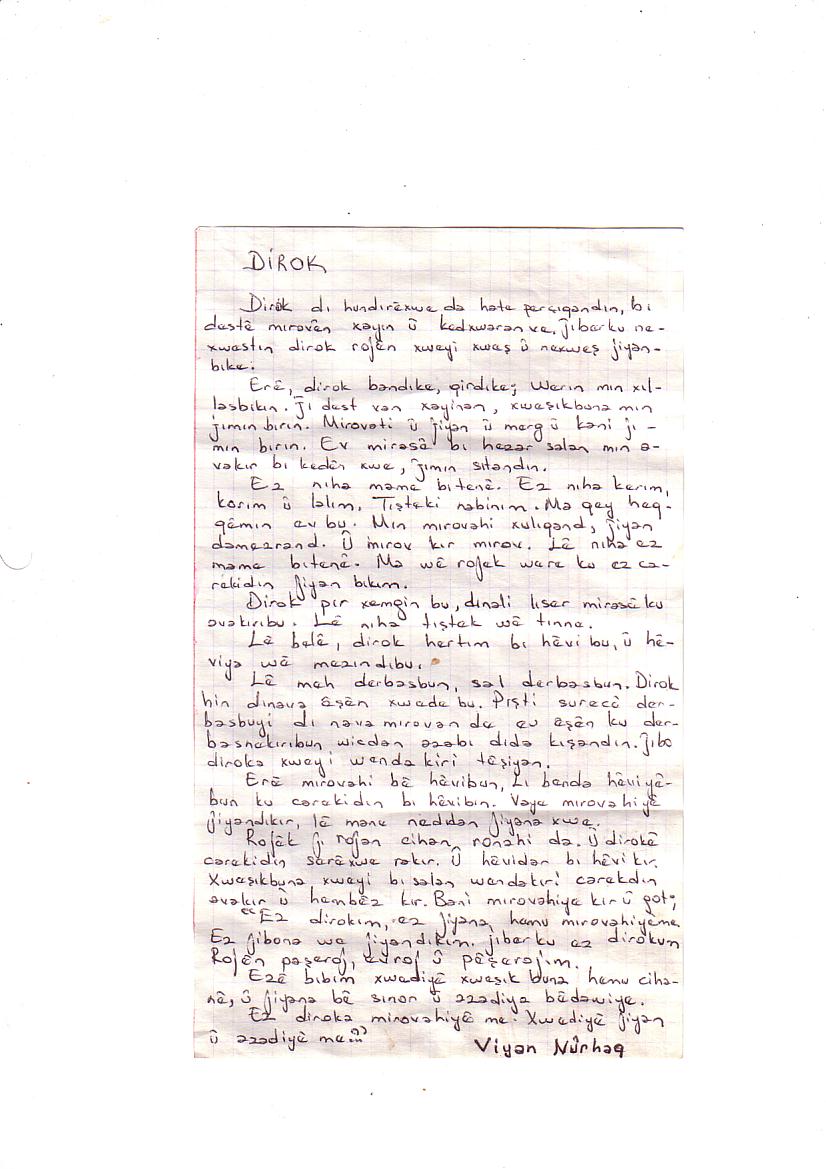 DİROK
Dirok di hundirêxwe da hate perçiqandın, bi
destê mirovên xayin û kedxwaran ve. Jıberku ne-
xwestin dirok rojên xweyi xweş û nexweş jiyan-
bike.
Erê, dirok bandike, qirdike; Werin min xıl-
lasbikin. Ji dest van xayinan, xweşikbuna min
jımin birin. Mirovati û jiyan û merg û kani ji-
min birin. Ev mirasê bi hezar salan min a-
vakir bi kedên xwe, jımin sıtandın.
Ez niha mame bıtenê. Ez niha kerim,
korim û lalim. Tışteki nabinim. Ma qey heq-
qêmin ev bu. Min mirovahi xulıqand, jiyan
damezrand. Û mirov kır mirov. Lê niha ez
mame bıtenê. Ma wê rojek were ku ez ca-
rekidın jiyan bıkım.
Dirok pır xemgin bu, dınali lıser mirasê ku
avakırıbu. Lê niha tıştek wê tınne.
Lê belê, dirok hertım bi hêvi bu, û hê-
viya wê mezındıbu.
Lê meh derbasbun, sal derbasbun. Dirok
hin dınava êşên xwede bu. Pışti surecê der-
basbuyi di nava mirovan da ev êşên ku der-
basnakırıbun wicdan azabi dıda kışandın. Jıbo
diroka xweyi wenda kıri têşiyan.
Erê mirovahi bê hêvibun, Li benda hêviyê-
bun ku carekidın bi hêvibin. Vaye mirovahiyê
jiyandıkır, lê mane neddan jiyana xwe.
Rojêk ji rojan cihan ronahi da. Û dirokê
carekidın serêxwe rakır. Û hêvidar bi hêvi kır.
Xweşikbuna xweyi bi salan wendakıri carekdın
avakır û hembêz kır. Bani mirovahiye kır û got;
"Ez dirokım, ez jiyana hemu mirovahiyême
Ez jıbona we jiyandıkım. jıberku ez dirokım
Rojên paşeroj, evroj û pêşerojım.
Ezê bıbım xwediyê xweşik buna hemu ciha-
nê, û jiyana bê sınor û azadiya bêdawiye.
Ez diroka mirovahiyê me. Xwediyê jiyan
û azadiyê me..."
Viyan Nûrhaq